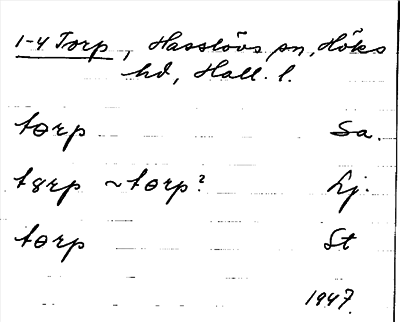 1-4 Torp, Hasslövs sn, Höks
hd, Hall. l.
torp Sa.
tɜrp ~ torp? Lj.
torp St
1947.